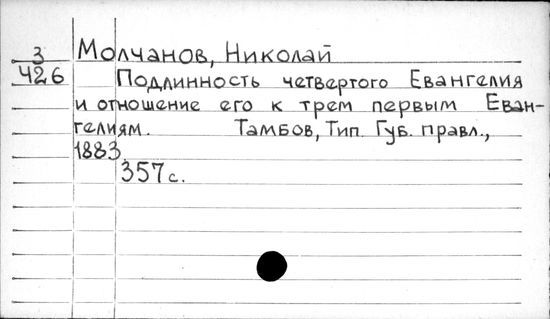 3
426
Молчанов, Николай
Подлинность четвертого Евангелия
и отношение его к трем первым Еван-
гелиям. Тамбов, Тип. Губ. правл.,
1883
357 с.